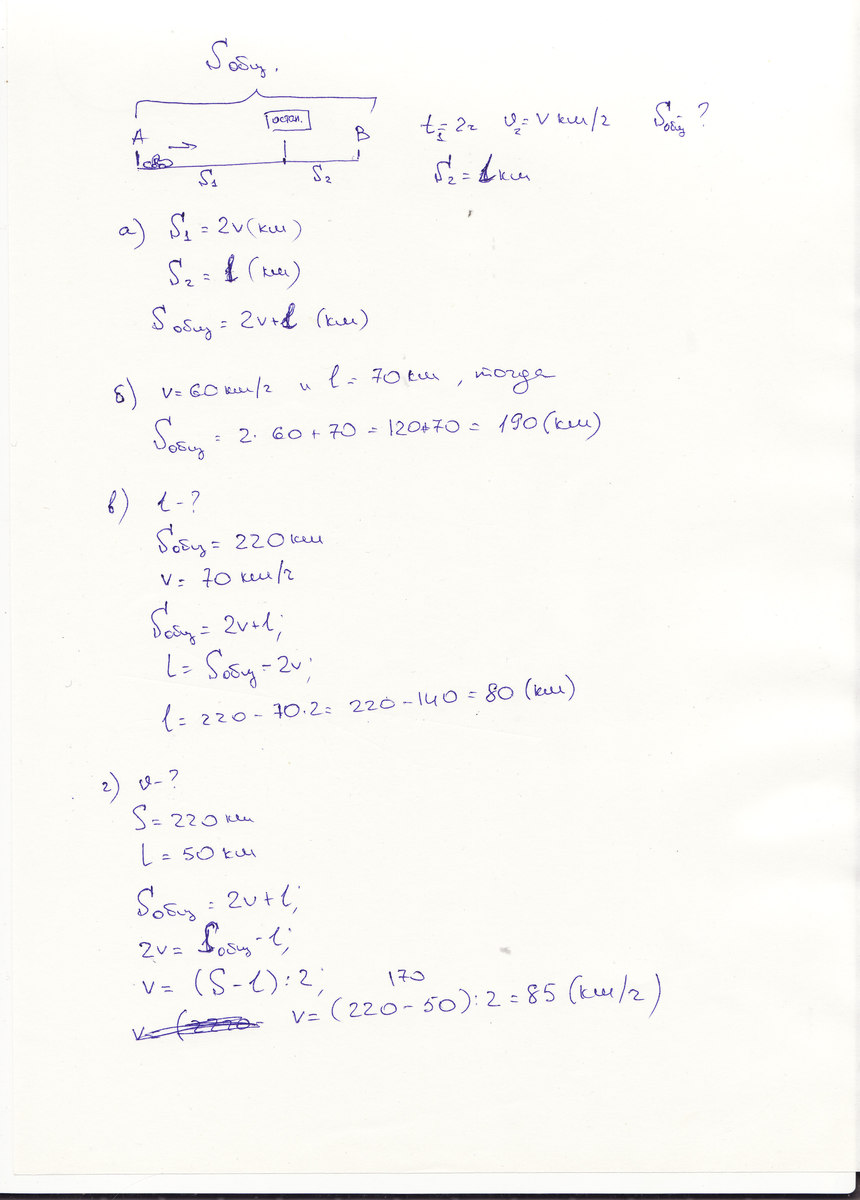 Sобщ.
остан.
A B
S₁ S₂
t₁ = 2ч v₂ = v км/ч Sобщ - ?
S₂ = l км
а) S₁ = 2v (км)
S₂ = l (км)
Sобщ = 2v + l (км)
б) v = 60 км/ч и l = 70 км, тогда
Sобщ = 2 · 60 + 70 = 120 + 70 = 190 (км)
в) l - ?
Sобщ = 220 км
v = 70 км/ч
Sобщ = 2v + l;
l = Sобщ - 2v;
l = 220 - 70 · 2 = 220 - 140 = 80 (км)
г) v - ?
S = 220 км
l = 50 км
Sобщ = 2v + l;
2v = Sобщ - l;
v = (S - l) : 2;
170
v = (220 - 50) : 2 = 85 (км/ч)